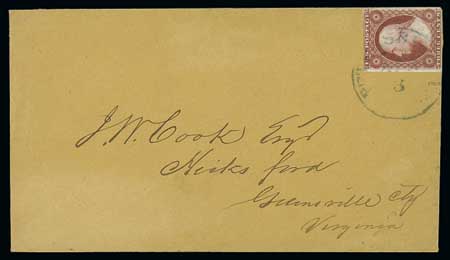 J. W. Cook Esqr
Hicks ford
Greensville Cty
Virginia
3